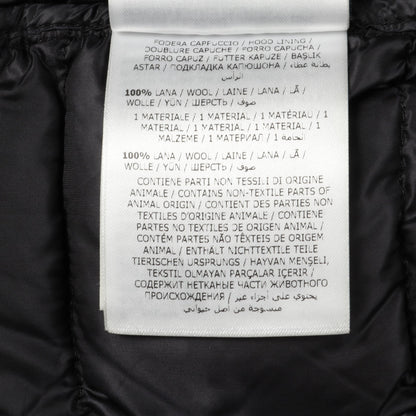 FODERA CAPPUCCIO / HOOD LINING /
DOUBLURE CAPUCHE / FORRO CAPUCHA /
FORRO CAPUZ / FUTTER KAPUZE / BAŞLIK
ASTAR / ПОДКЛАДКА КАПЮШОНА / بطانة غطاء
الرأس
100% LANA / WOOL / LAINE / LANA / LÃ /
WOLLE / YÜN / ШЕРСТЬ / صوف
1 MATERIALE / 1 MATERIAL / 1 MATÉRIAU / 1
MATERIAL / 1 MATERIAL / 1 MATERIAL / 1
MALZEME / 1 МАТЕРИАЛ / 1 الخامة
100% LANA / WOOL / LAINE / LANA / LÃ /
WOLLE / YÜN / ШЕРСТЬ / صوف
CONTIENE PARTI NON TESSILI DI ORIGINE
ANIMALE / CONTAINS NON-TEXTILE PARTS OF
ANIMAL ORIGIN / CONTIENT DES PARTIES NON
TEXTILES D'ORIGINE ANIMALE / CONTIENE
PARTES NO TEXTILES DE ORIGEN ANIMAL /
CONTÉM PARTES NÃO TÊXTEIS DE ORIGEM
ANIMAL / ENTHÄLT NICHTTEXTILE TEILE
TIERISCHEN URSPRUNGS / HAYVAN MENŞELİ,
TEKSTIL OLMAYAN PARÇALAR IÇERIR /
СОДЕРЖИТ НЕТКАНЫЕ ЧАСТИ ЖИВОТНОГО
ПРОИСХОЖДЕНИЯ / يحتوي على أجزاء غير
منسوجة من أصل حيواني